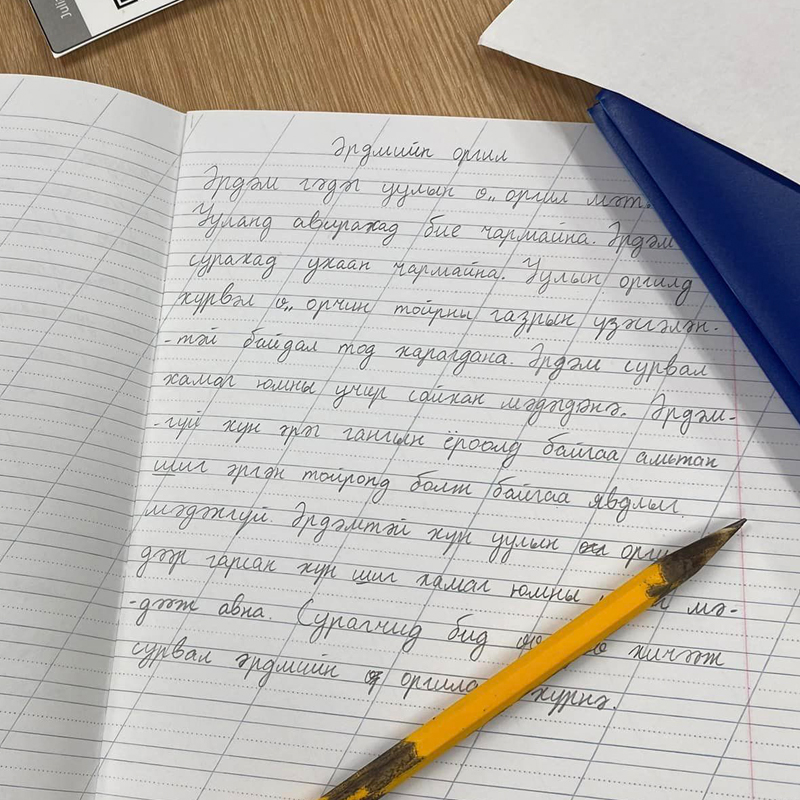 Juli
Эрдмийн оргил
Эрдэм гэдэг уулын о,, оргил мэт.
Ууланд авирахад бие чармайна. Эрдэм
сурахад ухаан чармайна. Уулын оргилд
хүрвэл о,, орчин тойрны газрын үзэгдэлэн-
-тэй байдал тод харагдана. Эрдэм сурвал
хамаг юмны учир сайхан мэдэгдэнэ. Эрдэм-
-гүй хүн эрэг гангын ёроолд байгаа амьтан
шиг эргэн тойронд болж байгаа явдлыг
мэдэхгүй. Эрдэмтэй хүн уулын
дээр гарсан хүн шиг хамаг юмны мэ-
-дээж авна. Сурагчид бид хичээж
сурвал эрдмийн хүрнэ.